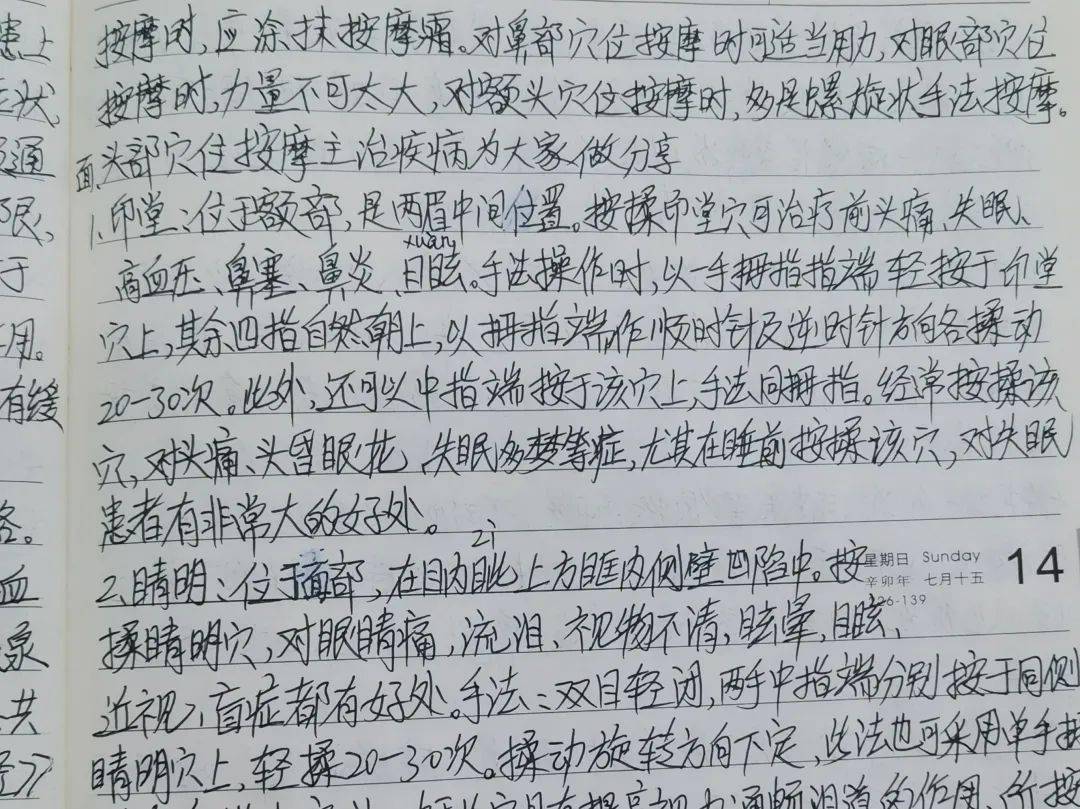 按摩时,应涂抹按摩霜。对鼻部穴位按摩时可适当用力,对眼部穴位
按摩时,力量不可太大,对额头穴位按摩时,多是螺旋状手法按摩。
面头部穴位按摩主治疾病为大家做分享
1、印堂:位于额部,是两眉中间位置。按揉印堂穴可治疗前头痛、失眠、
xuàn
高血压、鼻塞、鼻炎、目眩。手法操作时,以一手拇指指端轻按于印堂
穴上,其余四指自然朝上,以拇指端作顺时针及逆时针方向各揉动
20-30次。此外,还可以中指端按于该穴上,手法同拇指。经常按揉该
穴,对头痛、头昏眼花、失眠多梦等症,尤其在睡前按揉该穴,对失眠
患者有非常大的好处。
zì
2、睛明:位于面部,在目内眦上方眶内侧壁凹陷中。按
揉睛明穴,对眼睛痛,流泪、视物不清,眩晕,目眩、
近视、盲症都有好处。手法:双目轻闭,两手中指端分别按于同侧
睛明穴上,轻揉20-30次。揉动旋转方向不定,此法也可采用单手按
星期日 Sunday 14
辛卯年 七月十五
226-139
患上
状,
通
眼,
于
用。
有缓
血
泉
共